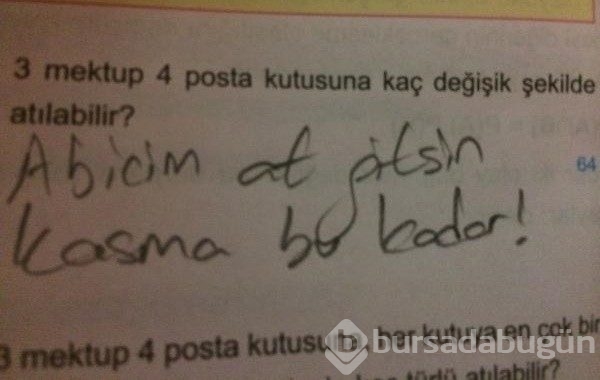 3 mektup 4 posta kutusuna kaç değişik şekilde
atılabilir?
Abicim at gitsin
64
kasma bu kadar!
3 mektup 4 posta kutusuna, her kutuya en çok bir
türlü atılabilir?
bursadabugün